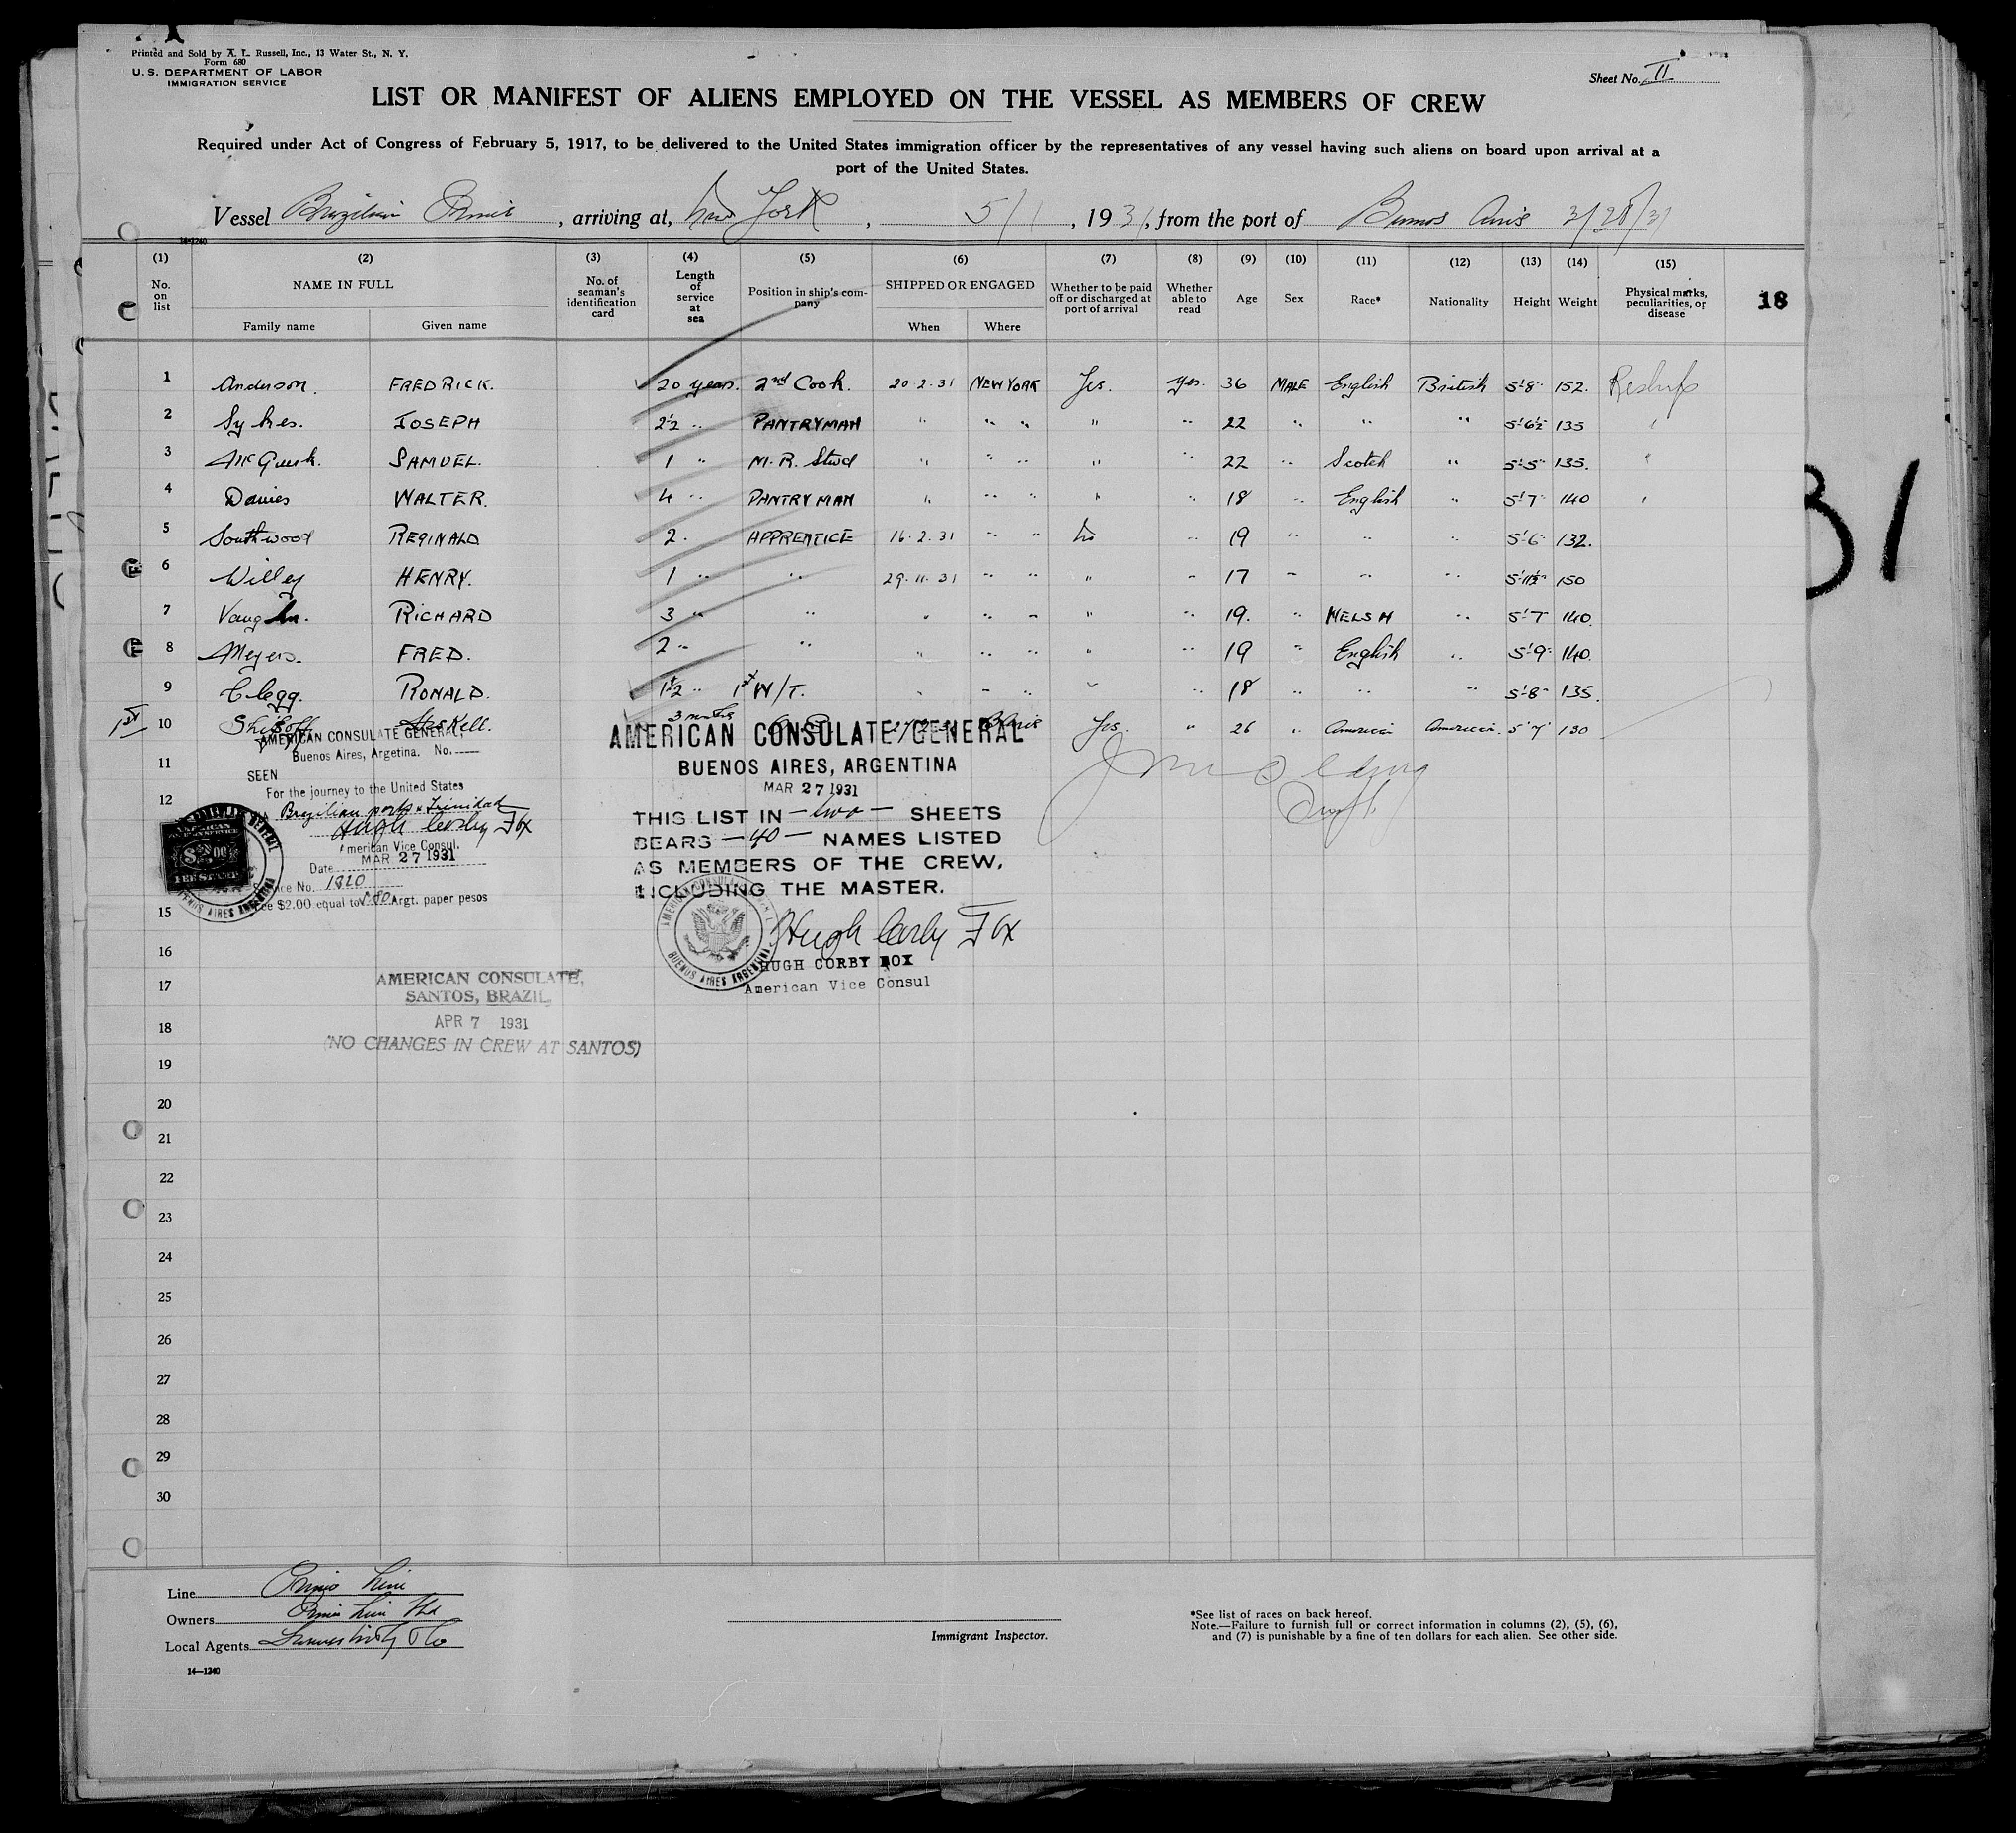 Printed and Sold by A. L. Russell, Inc., 13 Water St., N. Y.
Form 680
U. S. DEPARTMENT OF LABOR
IMMIGRATION SERVICE
Sheet No. II
LIST OR MANIFEST OF ALIENS EMPLOYED ON THE VESSEL AS MEMBERS OF CREW
Required under Act of Congress of February 5, 1917, to be delivered to the United States immigration officer by the representatives of any vessel having such aliens on board upon arrival at a
port of the United States.
Vessel Brazilian Prince, arriving at, New York, 5/1, 1931, from the port of Buenos Aires 3/28/31
14-1240
(1) (2) (3) (4) (5) (6) (7) (8) (9) (10) (11) (12) (13) (14) (15)
No. on list
NAME IN FULL
Family name Given name
No. of seaman's identification card
Length of service at sea
Position in ship's company
SHIPPED OR ENGAGED
When Where
Whether to be paid off or discharged at port of arrival
Whether able to read
Age Sex Race* Nationality Height Weight
Physical marks, peculiarities, or disease
18
1 Anderson. FREDRICK. 20 years. 2nd Cook. 20-2-31 NEW YORK Yes. Yes. 36 MALE English British 5'8" 152. Reship
2 Sykes. JOSEPH 2½ " PANTRYMAN " " " " " 22 " " " 5'6½" 135 "
3 McGurk. SAMUEL. 1 " M.R. Stwd " " " " " 22 " Scotch " 5'5" 135. "
4 Davies WALTER. 4 " PANTRYMAN " " " " " 18 " English " 5'7" 140 "
5 Southwood REGINALD 2. APPRENTICE 16-2-31 " " No " 19 " " " 5'6" 132.
6 Willey HENRY. 1 " " 29-11-31 " " " " 17 " " " 5'11½" 150
7 Vaughn. RICHARD 3 " " " " " " " 19. " WELSH " 5'7" 140.
8 Meyers. FRED. 2 " " " " " " " 19 " English " 5'9" 140.
9 Clegg. RONALD. 1½ " 1st W/T. " " " " " 18 " " " 5'8" 135.
1st 10 3 months B Aires Yes. " 26 " American American. 5'7" 130
11
12
15
16
17
18
19
20
21
22
23
24
25
26
27
28
29
30
AMERICAN CONSULATE GENERAL
Buenos Aires, Argetina. No.
SEEN
For the journey to the United States
Brazilian ports & Trinidad
Hugh Corby Fox
American Vice Consul.
Date MAR 27 1931
Service No. 1820
Fee $2.00 equal to Argt. paper pesos
AMERICAN CONSULATE GENERAL
BUENOS AIRES, ARGENTINA
MAR 27 1931
THIS LIST IN - two - SHEETS
BEARS - 40 - NAMES LISTED
AS MEMBERS OF THE CREW,
INCLUDING THE MASTER.
Hugh Corby Fox
HUGH CORBY FOX
American Vice Consul
AMERICAN CONSULATE,
SANTOS, BRAZIL,
APR 7 1931
(NO CHANGES IN CREW AT SANTOS)
Line Prince Line
Owners Prince Line Ltd
Local Agents
14-1240
Immigrant Inspector.
*See list of races on back hereof.
Note.—Failure to furnish full or correct information in columns (2), (5), (6),
and (7) is punishable by a fine of ten dollars for each alien. See other side.
31